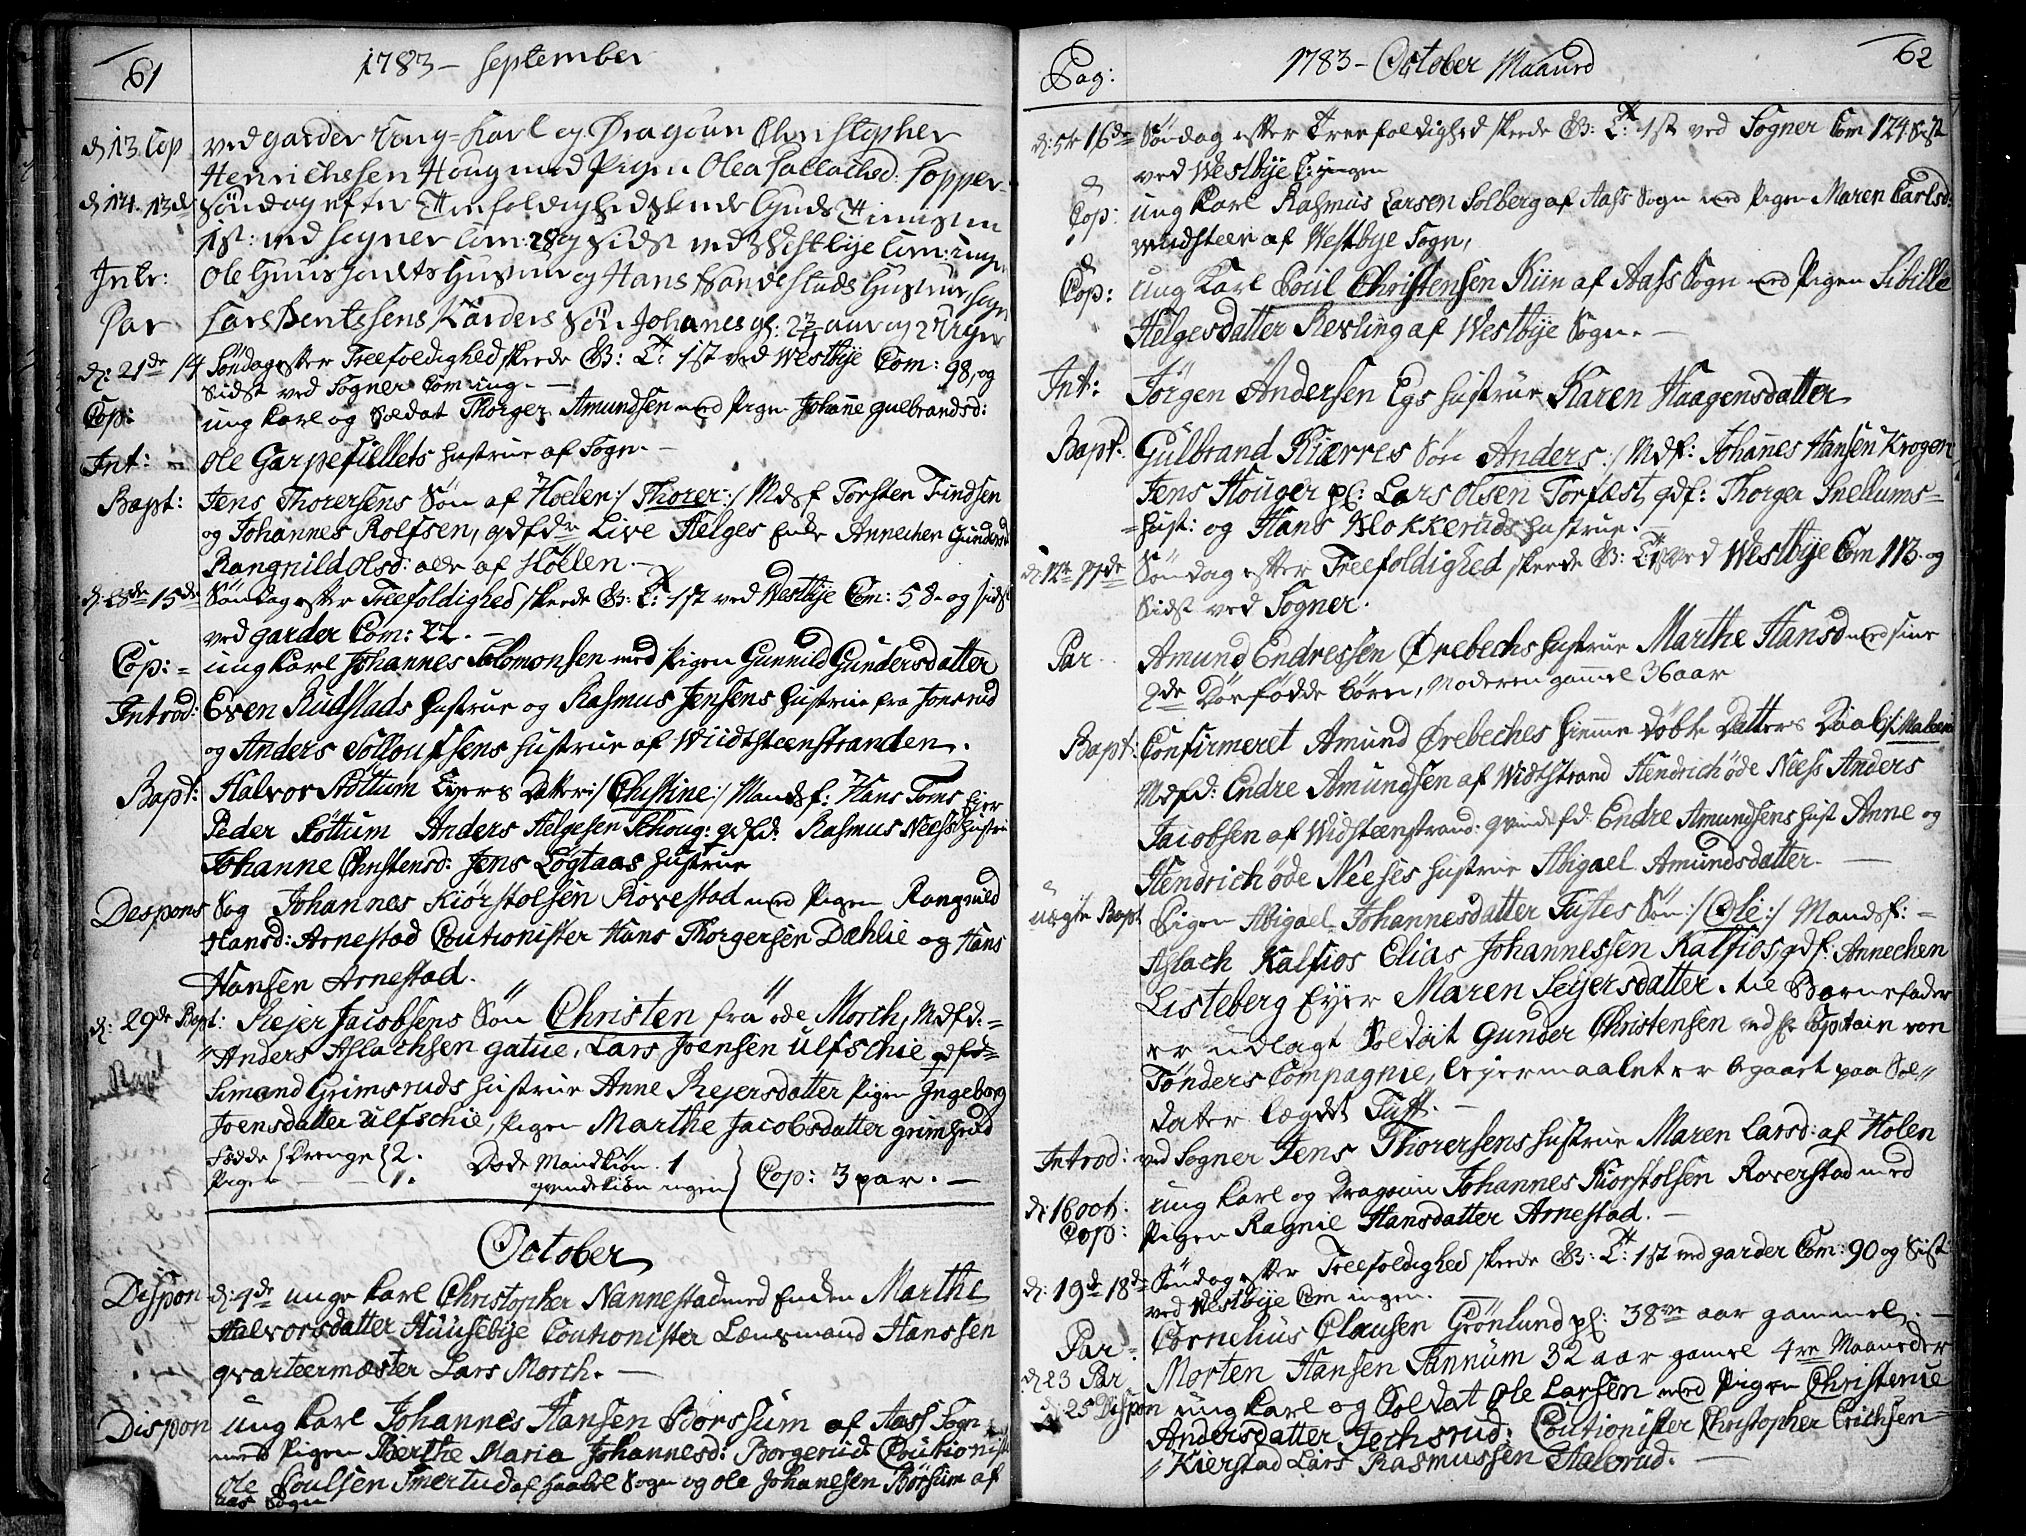 61
1783 - September
d 13 Cop ved garder Ung-Karl og Dragoun Christopher
Henrichssen Houg med Pigen Olea Pallachsd: Popper
d 14. 13de Søndag efter Trefoldighed skeede Guds Tienesten
1st: ved Sogner Com: 289 Sidst ved Westbye Com: ingen
Intr: Ole Huustvedts Hustrue og Hans Sandestads Hustrue, Sogn
Par Lars Bentssens Karders Søn Johanes gl: 2 aar og 2 Uger
d: 21de 14 Søndag efter Treefoldighed skeede G: T: 1st ved Westbye Com: 98, og
Sidst ved Sogner Com ing. -
Cop: ung Karl og Soldat Thorger Amundsen med Pigen Johane Gulbrandsd:
Int: Ole Garpefiellets Hustrue af Sogn. -
Bapt: Jens Thorersens Søn af Hoelen :/ Thorer :/ Mdsf Torsten Trindsen
og Johannes Rolfsen, qdfdr Live Helges Enke Annechen Gundersd
Rangnild Olsd: alle af Hoelen. -
d: 28de 15de Søndag efter Treefoldighed skeede G: T: 1st ved Westbye Com: 58 - og sidst
ved garder Com: 22. -
Cop: = ung Karl Johannes Solomonsen med Pigen Gunnild Gundersdatter
Introd: Even Rudstads Hustrue og Rasmus Jensens Hustrue fra Jonsrud
og Anders Tolloufsens Hustrue af Wiidtsteenstranden.
Bapt: Halvor Støttum Eyers Datter :/ Christine :/ Mandsf: Hans Toms Eyer
Peder Støttum Anders Helgesen Schoug: qdfd: Rasmus Neess Hustrue
Johanne Christensd: Jens Løgtaas Hustrue
Despons Sag Johannes Kiørstolsen Rovestad med Pigen Rangnild
Hansd: Arnestad Coutionister Hans Thorgersen Dæhlie og Hans
Hansen Arnestad.
d: 29de Bapt: Rejer Jacobsens Søn Christen fra øde Morch, Mdfd: =
Anders Aslachsen gatue, Lars Joensen Ulfschie qdfd=
Simand Grimsruds Hustrue Anne Rejersdatter Pigen Ingeborg
Joensdatter Ulfschie, Pigen Marthe Jacobsdatter grimsrud
Fødde { Drenge { 2. Døde Mandkiøn . 1 } Cop: 3 par. -
Piger - - 1. qvindekiøn ingen
October
Dispon d: 4de unge Karl Christopher Nannestad med Enken Marthe
Halvorsdatter Huusebye Coutionister Lænsmand Hanssen
qvarteermester Lars Morch. -
Dispon ung Karl Johannes Hansen Børssum af Aass Sogn
med Pigen Berthe Maria Johannesd: Borgerud Coutionist
Ole Poulsen Smertud af Haabel Sogn og Ole Johanesen Børsum af
aas Sogn
Pag: 1783 - October Maaned 62
d: 5te 16de Søndag efter Treefoldighed skeede G: T: 1st ved Sogner Com 124 Sist
ved Westbye C: ingen
Cop: ung Karl Rasmus Larsen Solberg af Aass Sogn med Pigen Maren Carlsd:
Wiidsteen af Westbye Sogn,
Cop: ung Karl Poul Christensen Kiin af Aass Sogn med Pigen Sibille
Helgesdatter Revling af Westbye Sogn. -
Int: Jörgen Andersen Egs Hustrue Karen Haagensdatter
Bapt: Gulbrand Kiærres Søn Anders :/ Mdf: Johannes Hansen Krogen
Jens Houger pl: Lars Olsen Torfæst, qdf: Thorger Snellums=
=Hust: og Hans Klokkeruds Hustrue. -
d: 12te 17de Søndag efter Treefoldighed skeede G: T: 1st ved Westbye Com 113. og
Sidst ved Sogner.
Par Amund Endressen Ørebechs Hustrue Marthe Hansd med sine
2de Dørfødde Børn, Moderen gammel 36 aar
Bapt: Confirmeret Amund Ørebeches Hiemme Døbte Datters Daab / Maleen
Mdfd: Endre Amundsen af Widtstrand Hendrich øde Neess Anders
Jacobsen af Widsteenstrand: qvindfd: Endre Amundsens Hust Anne og
Hendrich øde Neeses Hustrue Abigael Amundsdatter. -
uægte Bapt Pigen Abigael Johannesdatter Tuftes Søn :/ Ole :/ Mandsf: =
Aslach Kalfios Elias Johannessen Kalfios, qdf: Annechen
Listeberg Eyer Maren Seyersdatter. til Barnefader
er udlagt Soldat Gunder Christensen ved Hr Captain von
Tønders Compagnie, lejermaalet er begaaet paa Sol=
dater lægdet Tuft. -
Introd: ved Sogner Jens Thorersens Hustrue Maren Larsd: af Holen
d: 16 oct: ung Karl og Dragoun Johannes Kiorstolsen Roverstad med
Cop: Pigen Ragnie Hansdatter Arnestad. -
d: 19de 18de Søndag efter Treefoldighed skeede G: T: 1st ved garder Com: 90 og Sist
ved Westbye Com ingen.
Par: Cornelius Clausen Grönlund pl: 38ve aar gammel. -
d 23 Par Morten Hansen Fannum 32 aar gamel 4re Maaneder
d: 25 Dispon ung Karl og Soldat Ole Larsen med Pigen Christenie
Andersdatter Jechsrud: Coutionister Christopher Erichsen
Kierstad Lars Rasmussen Stalerud. -